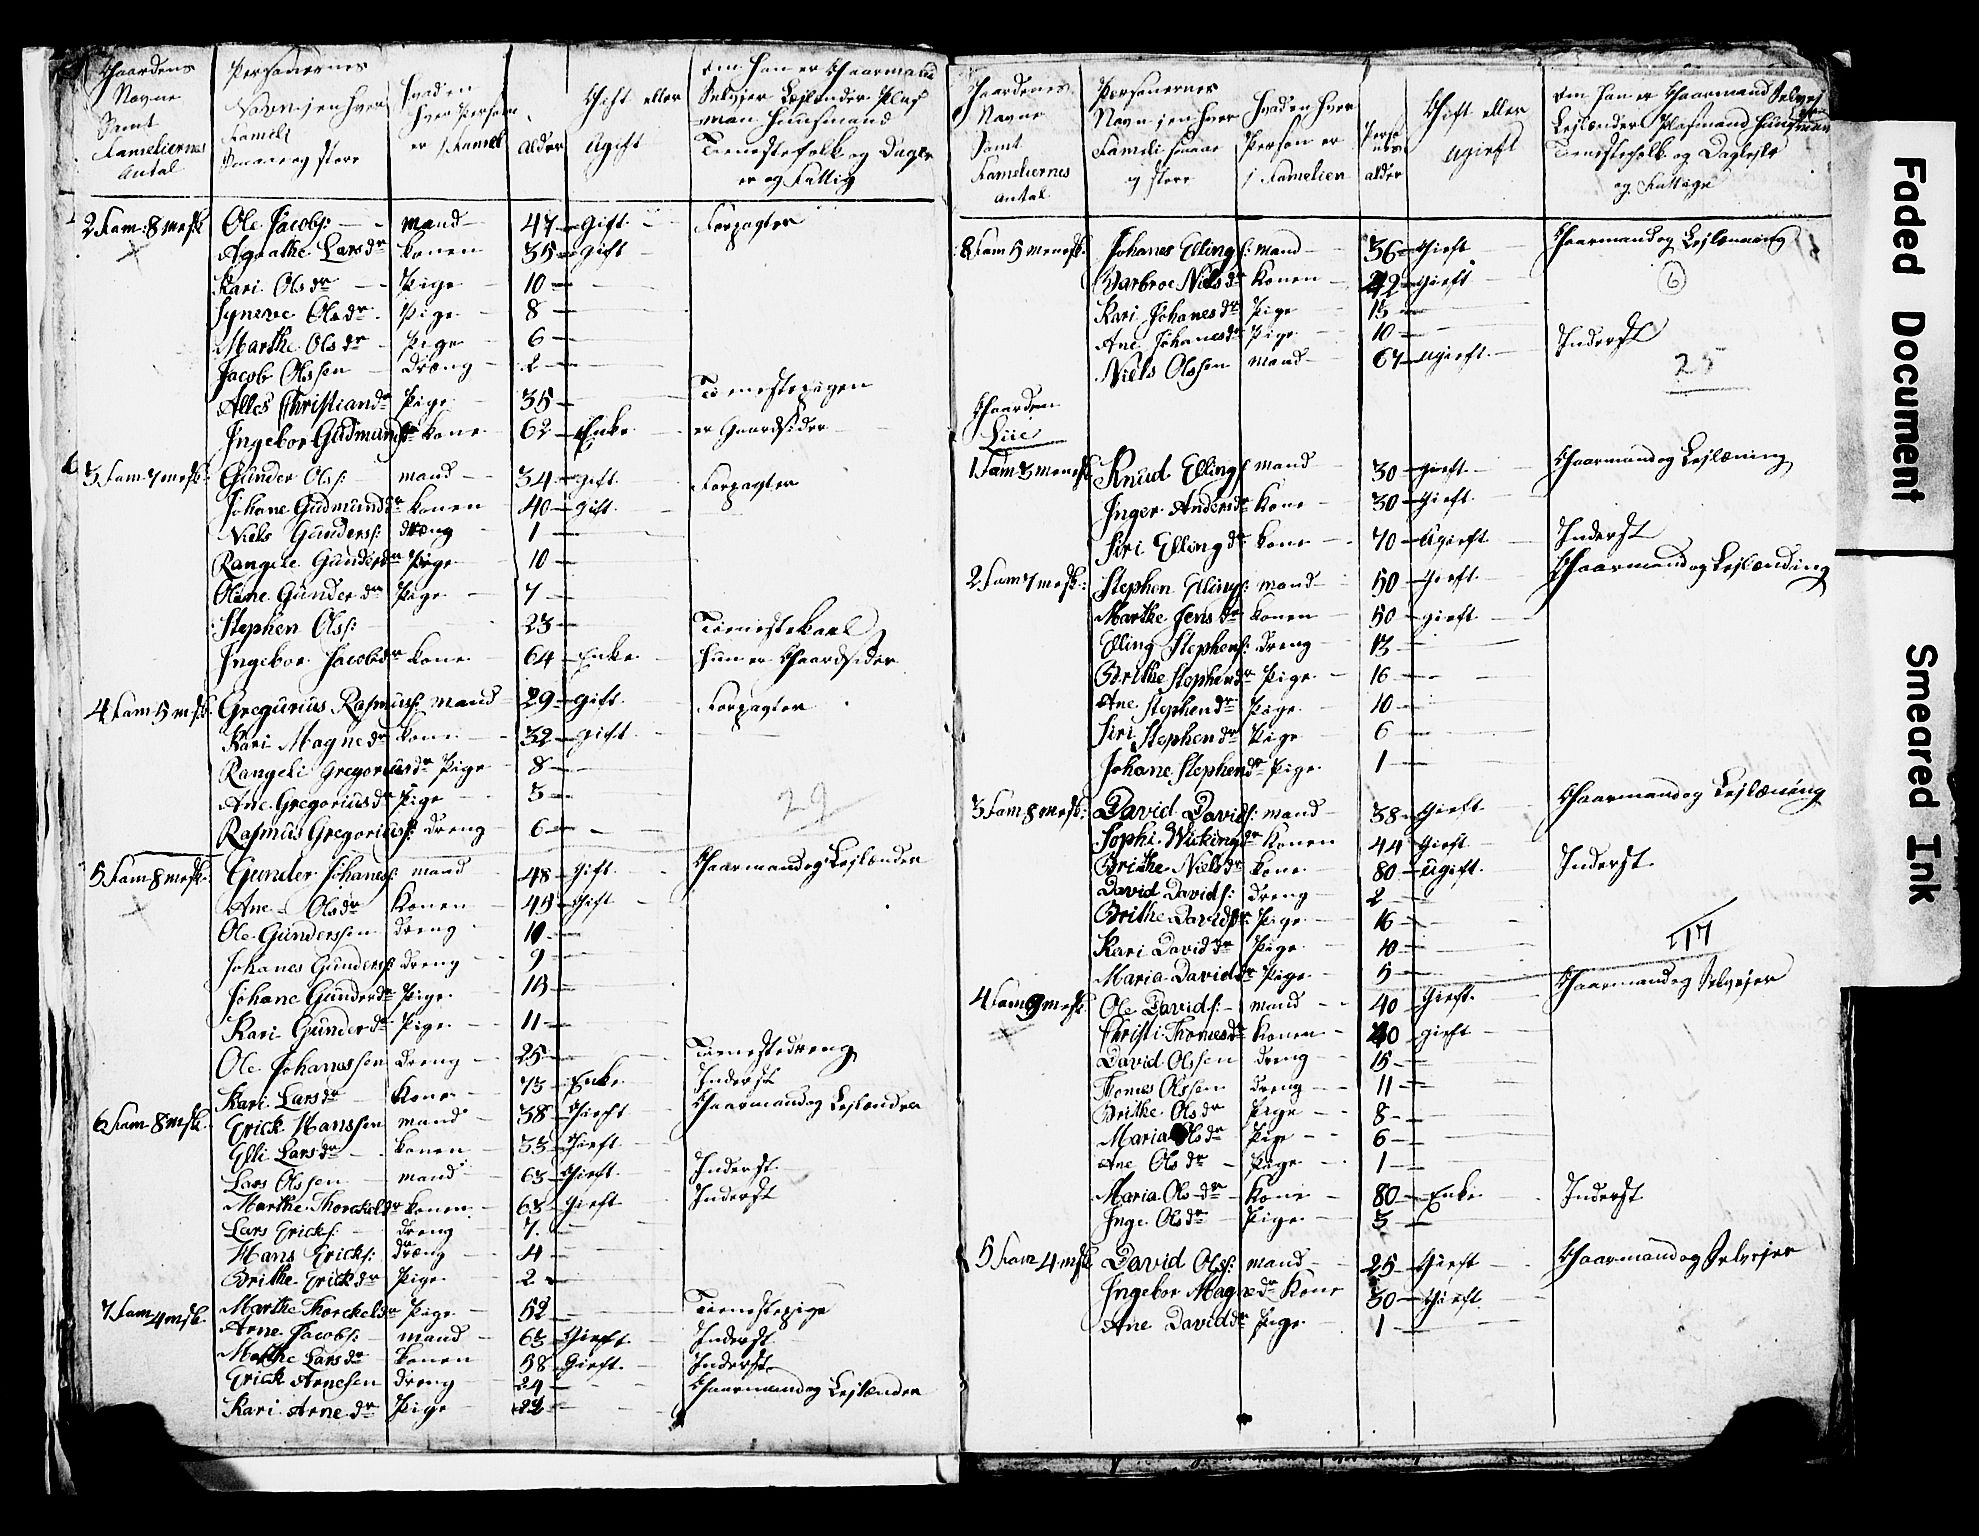 Gaardens
Navne
Samt
Fameliernes
Antal
Personernes
Navn i en hver
Famili
Smaa og store
hvad en
hver Person
er i Famili
alder
Gift eller
Ugift
Om han er Gaarmand
Selvejer Lejlænder Plas
man Huusmand
Tienestefolk og Dagle
er og Fattig
2 Fam: 8 mesk Ole Jacobs: mand 47 Gift Forpagter
Agaathe Larsdr konen 35 Gift
Kari Olsdr Pige 10
Syneve Olsdr Pige 8
Marthe Olsdr Pige 6
Jacob Olssen dræng 2
Alles Christiandr Pige 35 Tienestepigen
Ingebor Gudmundsdr kone 62 Enke er Gaardsider
3 Fam 7 mesk: Gunder Ols: mand 34 gift Forpagter
Johane Gudmundsdr konen 40 gift
Niels Gunders: dræng 1
Rangele Gunderdr Pige 10
Oline Gunderdr Pige 7
Stephen Ols: 23 Tienestekarl
Ingebor Jacobdr kone 64 Enke hun er Gaardsider
4 Fam 5 msk. Gregurius Rasmus: mand 29 Gift Forpagter
Kari Magnedr kone 32 gift
Rangeli Gregoriusdr Pige 8
Ane Gregoriusdr Pige 3
29
Rasmus Gregorius: dreng 6
5 Fam 8 mesk. Gunder Johanes: mand 48 Gift Gaarmand og Lejlænder
Ane Olsdr konen 45 Gift
Ole Gunderssen dreng 10
Johanes Gunders: dreng 9
Johane Gunderdr Pige 15
Kari Gunderdr Pige 11
Ole Johanessen dreng 25 Tienestedreng
Kari Larsdr kone 73 Enke Inderst
6 Fam 8 msk. Erick Hanssen mand 38 Gieft Gaarmand og Lejlænder
Elli Larsdr konen 33 Gieft
Lars Olssen mand 63 Gieft Inderst
Marthe Thorckeldr konen 63 Gieft Inderst
Lars Ericks: dreng 7
Hans Ericks: dræng 4
Brithe Erickdr Pige 2
Marthe Thorckeldr Pige 52 Tienestepige
7 Fam 4 msk. Arne Jacobs: mand 63 Gieft Inderst
Marthe Larsdr konen 58 Gieft Inderst
Erick Arnesen dreng 24 Gaarmand og Lejlænder
Kari Arnedr Pige 22
Gaardenes
Navne
Samt
Fameliernes
antal
Personernes
Navn i en hver
Famili smaae
og store
hvad en hver
Person er
i Famelien
Perso
nens
alder
Gift eller
Ugieft
Om han er Gaarmand Selvej
Lejlænder Plasmand Huusman
Tienestefolk og Daglejer
og Fattige
8 Fam 5 menesk. Johanes Elling: mand 36 Gieft Gaarmand og Lejlænning
Barbroe Nielsdr konen 42 Gieft
6
Kari Johanesdr Pige 15
Ane Johanesdr Pige 10
Niels Olssen mand 67 ugieft Inderst
25
Gaarden
Liie
1 Fam 3 menesk Knud Elling: mand 30 gieft Gaarmand og Lejlæning
Inger Andersdr kone 30 Gieft
Siri Ellingdr kone 70 Ugieft Inderst
2 Fam 7 mesk: Stephen Elling: mand 50 Gieft Gaarmand og Lejlænding
Marthe Jensdr konen 50 gieft
Elling Stephens: dreng 13
Brithe Stephendr Pige 16
Ane Stephendr Pige 10
Siri Stephendr Pige 6
Johane Stephendr Pige 1
3 Fam 8 mesk: David Davids: mand 38 Gieft Gaarmand og Lejlæning
Sophi Wikingdr konen 44 Gieft
Brithe Nielsdr kone 80 Ugieft Inderst
David Davids: dreng 2
Brithe Daviddr Pige 16
Kari Daviddr Pige 10
17
Maria Daviddr Pige 5
4 Fam 9 mesk Ole Davids: mand 40 Gieft Gaarmand og Selvejer
Christi Thomesdr konen 40 gieft
David Olssen dreng 15
Thomes Olssen dreng 11
Brithe Olsdr Pige 8
Maria Olsdr Pige 6
Ane Olsdr Pige 1
Maria Olsdr kone 80 Enke Inderst
Inge Olsdr Pige 3
5 Fam 4 msk David Ols: mand 25 Gieft Gaarmand og Selvejer
Ingebor Magnedr kone 30 Gieft
Ane Daviddr Pige 1
Faded Document
Smeared Ink